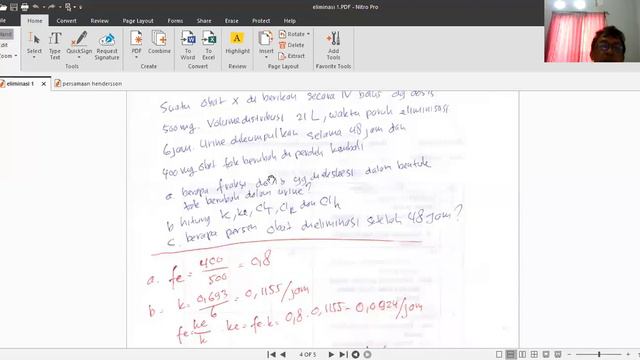 eliminasi 1.PDF - Nitro Pro
Home View Edit Page Layout Forms Share Review Protect Erase Help
Hand
Select
Type Text
QuickSign
Request Signature
PDF
Combine
To Word
To Excel
Highlight
Insert Image
Insert Link
eliminasi 1
persamaan hendersson
Suatu obat X di berikan secara IV bolus dg dosis
500 mg. Volume distribusi 21 L, waktu paruh eliminasi
6 jam. Urine dikumpulkan selama 48 jam dan
400 mg obat tak berubah di peroleh kembali
a berapa fraksi dosis yg diekskresi dalam bentuk
tak berubah dalam urine?
b hitung k, ke, ClT, ClR dan Clh
c. berapa persen obat dieliminasi setelah 48 jam?
a. fe = 400/500 = 0,8
b = k = 0,693/6 = 0,1155/jam
fe = ke/k ke = fe.k = 0,8 . 0,1155 = 0,0924/jam
4 OF 5